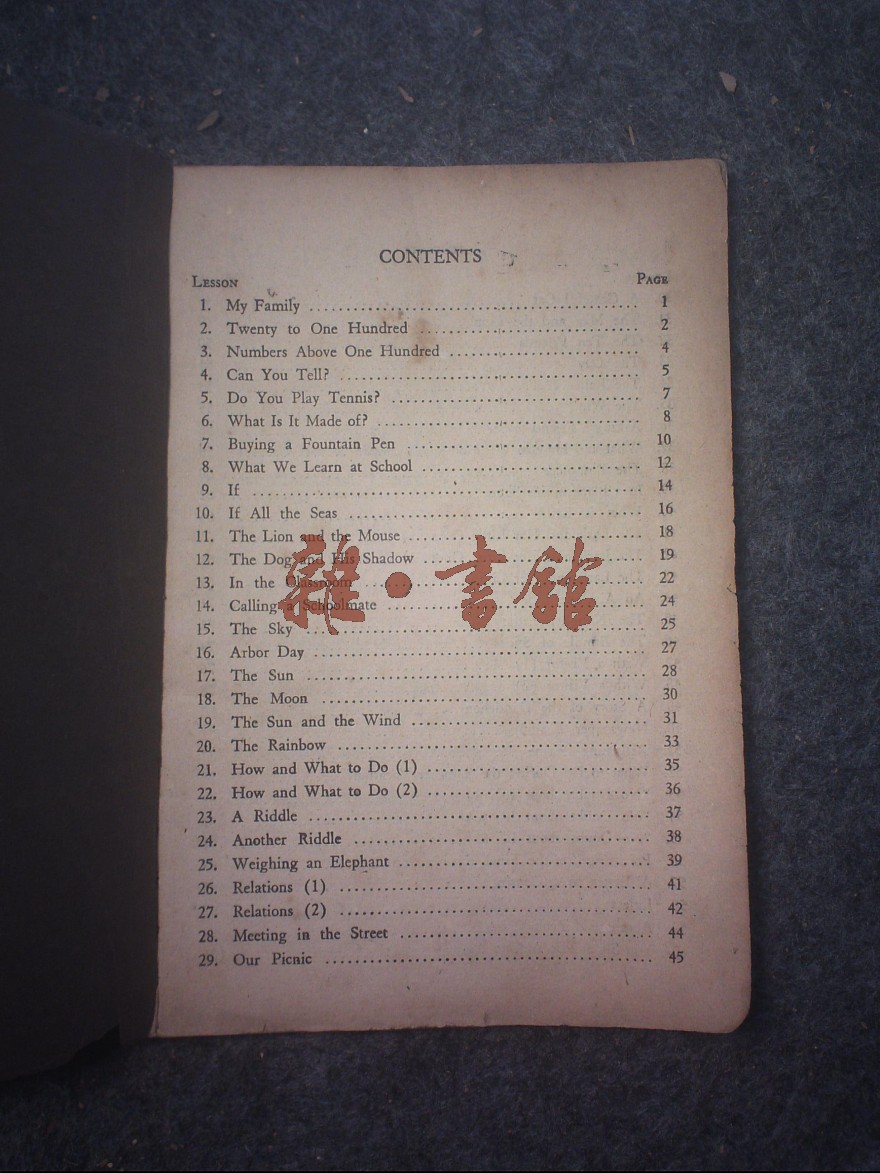 CONTENTS
LESSON PAGE
1. My Family ........ 1
2. Twenty to One Hundred ........ 2
3. Numbers Above One Hundred ........ 4
4. Can You Tell? ........ 5
5. Do You Play Tennis? ........ 7
6. What Is It Made of? ........ 8
7. Buying a Fountain Pen ........ 10
8. What We Learn at School ........ 12
9. If ........ 14
10. If All the Seas ........ 16
11. The Lion and the Mouse ........ 18
12. The Dog and His Shadow ........ 19
13. In the Classroom ........ 22
14. Calling a Schoolmate ........ 24
15. The Sky ........ 25
16. Arbor Day ........ 27
17. The Sun ........ 28
18. The Moon ........ 30
19. The Sun and the Wind ........ 31
20. The Rainbow ........ 33
21. How and What to Do (1) ........ 35
22. How and What to Do (2) ........ 36
23. A Riddle ........ 37
24. Another Riddle ........ 38
25. Weighing an Elephant ........ 39
26. Relations (1) ........ 41
27. Relations (2) ........ 42
28. Meeting in the Street ........ 44
29. Our Picnic ........ 45
雜•書館